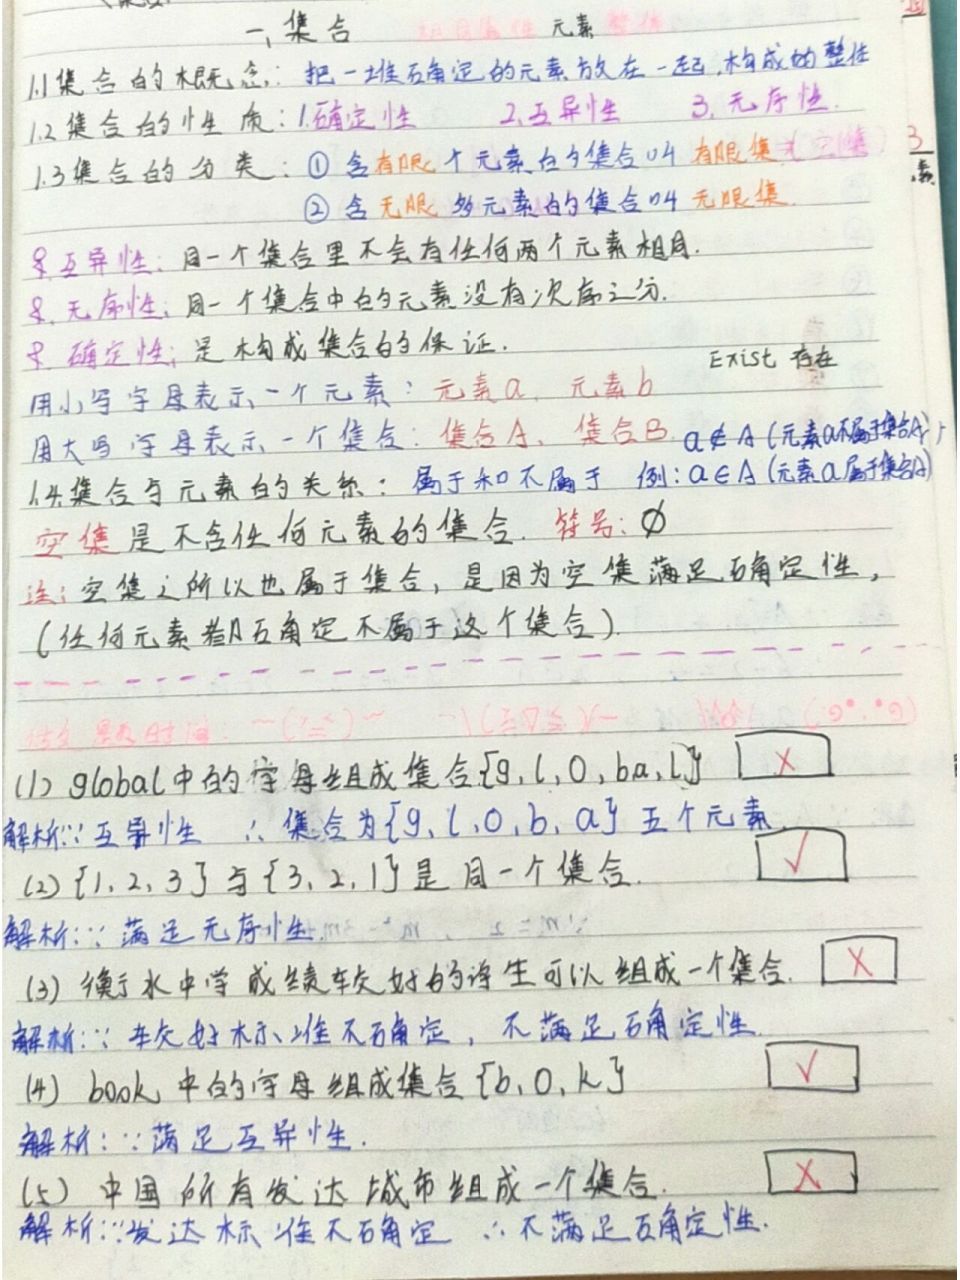 一、集合 元素
1.1集合的概念：把一堆确定的元素放在一起,构成的整体
1.2集合的性质：1.确定性 2.互异性 3.无序性.
1.3集合的分类：① 含有限个元素的集合叫 有限集(空集)
② 含无限多元素的集合叫 无限集.
&.互异性：同一个集合里不会有任何两个元素相同.
&.无序性：同一个集合中的元素没有次序之分.
&.确定性：是构成集合的保证.
Exist 存在
用小写字母表示一个元素：元素a、元素b
用大写字母表示一个集合：集合A、集合B.
a∉A(元素a不属于集合A)
1.4集合与元素的关系：属于和不属于 例：a∈A(元素a属于集合A)
空集是不含任何元素的集合. 符号：∅
注：空集之所以也属于集合，是因为空集满足确定性，
(任何元素都确定不属于这个集合).
(1) global中的字母组成集合{g,l,o,ba,l} ×
解析：∵互异性 ∴集合为{g,l,o,b,a}五个元素
(2) {1,2,3}与{3,2,1}是同一个集合. √
解析：∵满足无序性.
(3) 衡水中学成绩较好的学生可以组成一个集合. ×
解析：∵较好标准不确定，不满足确定性.
(4) book中的字母组成集合{b,o,k} √
解析：∵满足互异性.
(5) 中国所有发达城市组成一个集合. ×
解析：∵发达标准不确定 ∴不满足确定性.